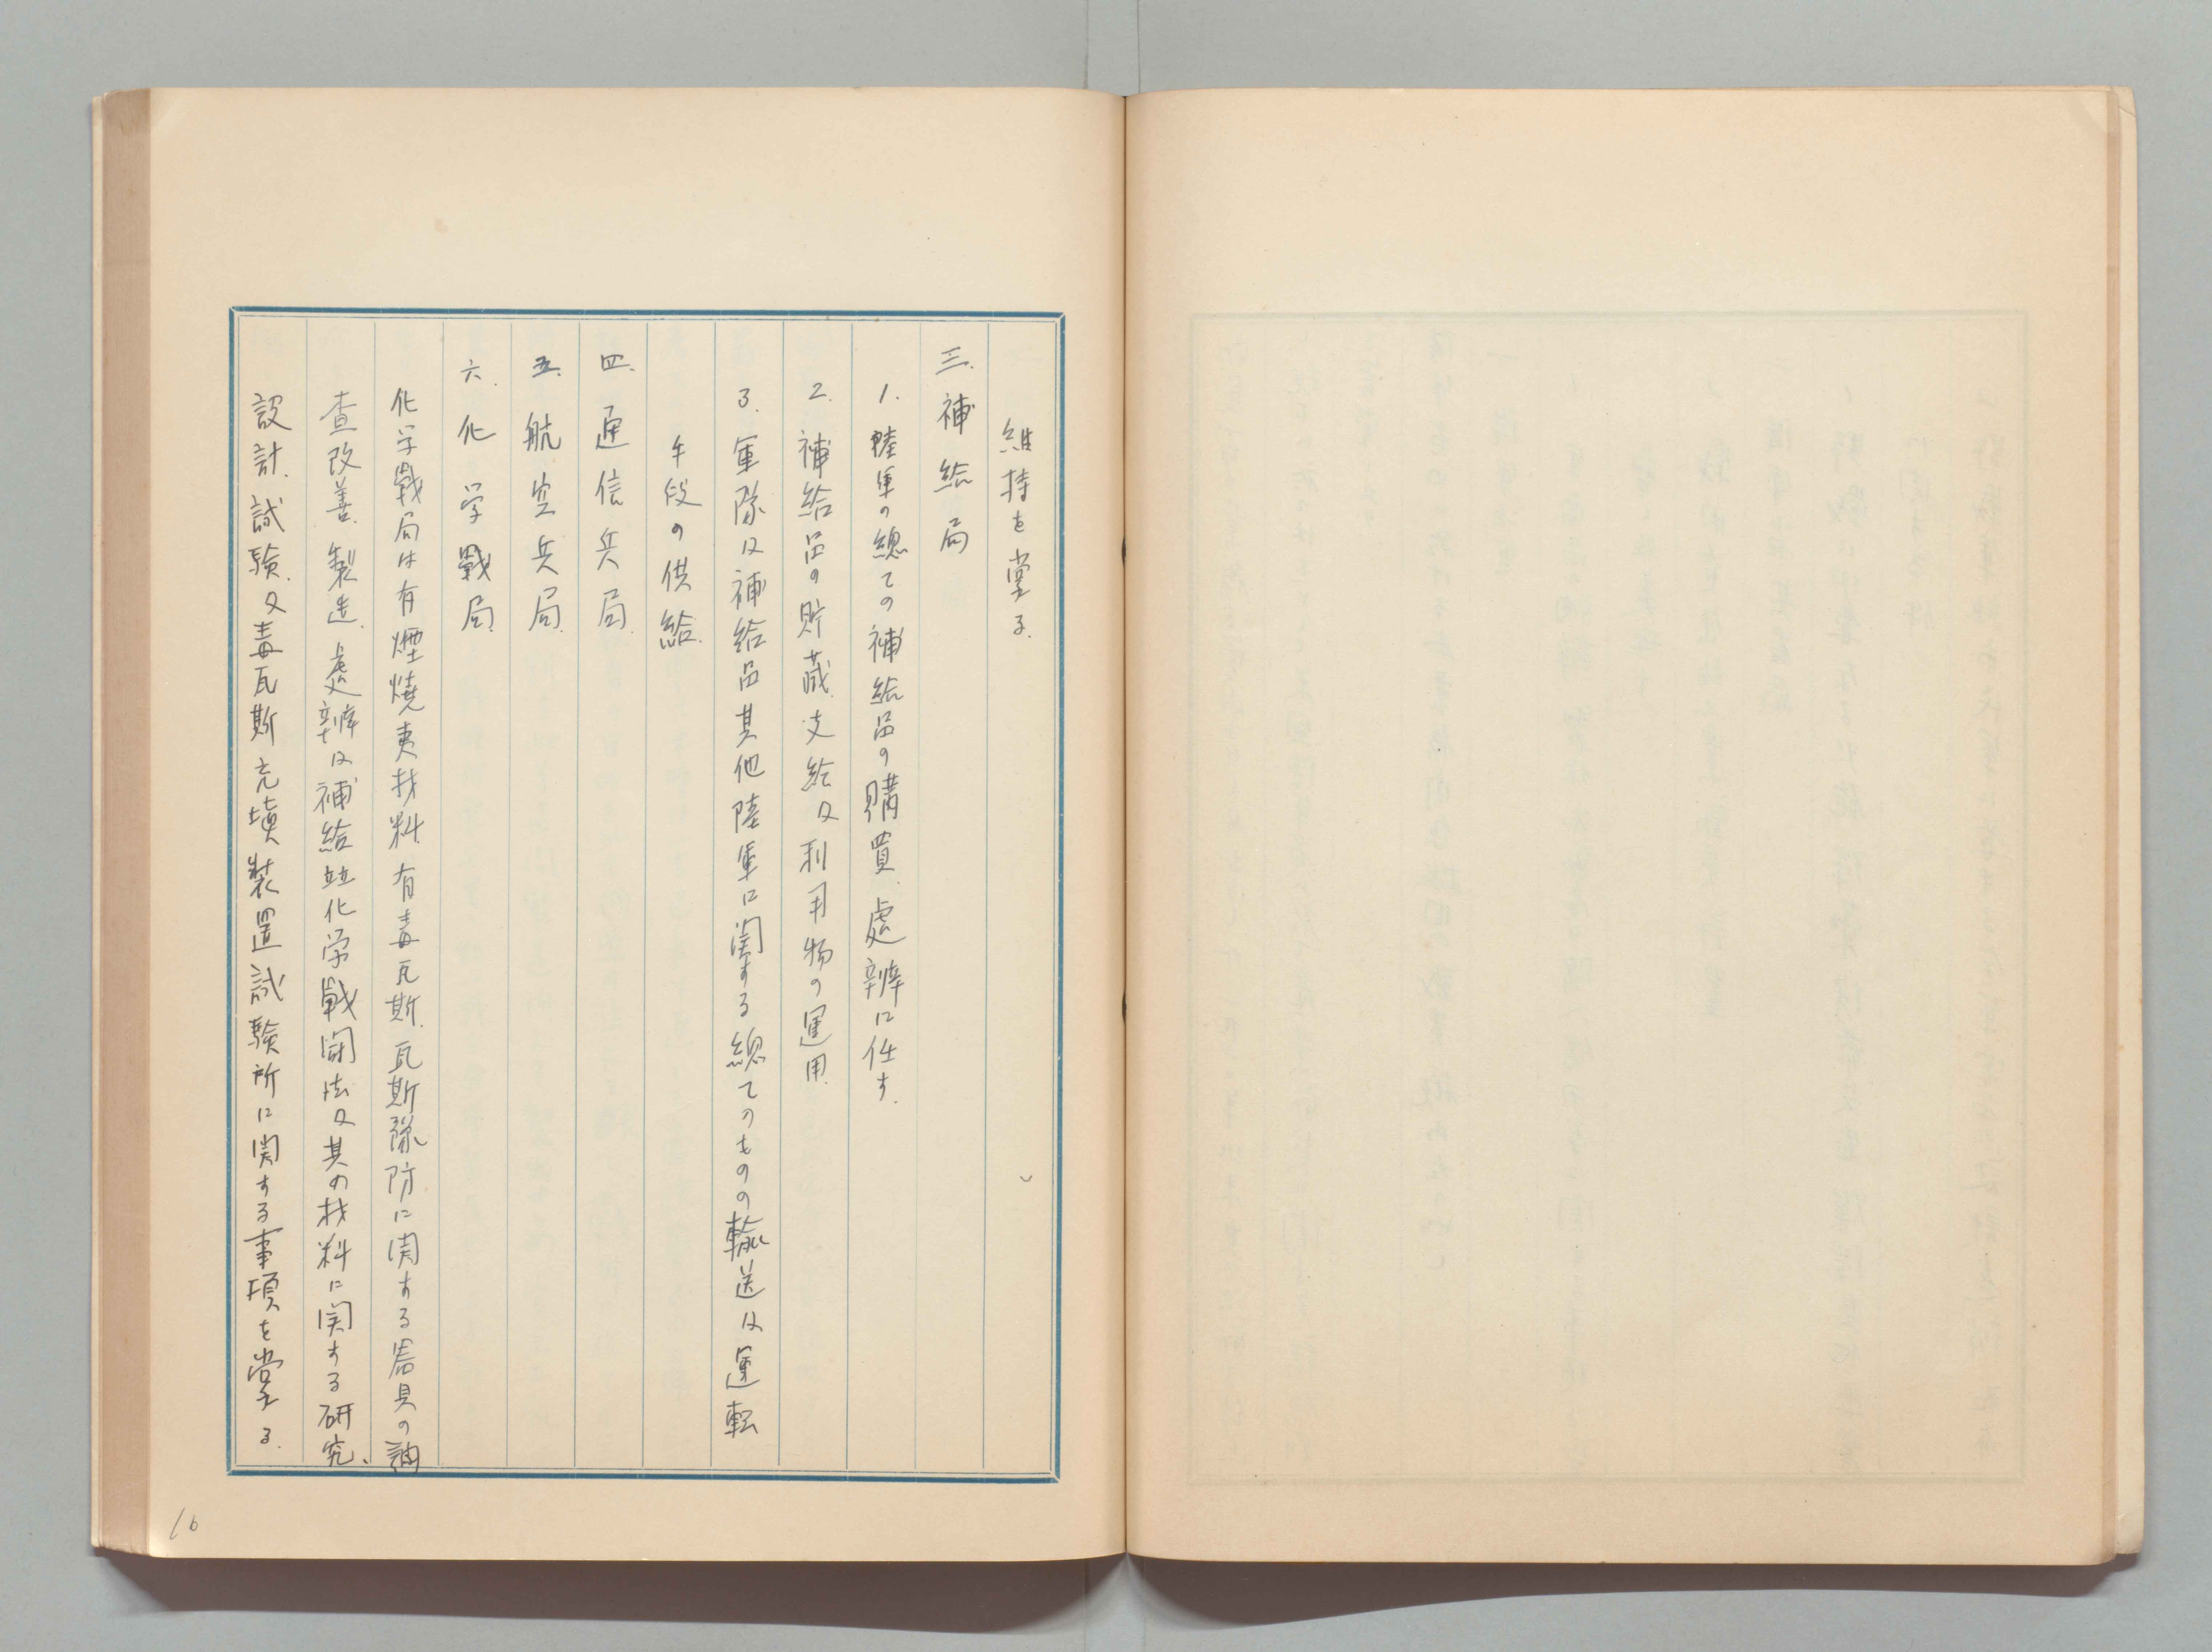 維持を掌る.
三.補給局
1.陸軍の總ての補給品の購買、處辨に任す.
2.補給品の貯蔵、支給及利用物の運用.
3.軍隊及補給品其他陸軍に関する總てのものの輸送及運転
手段の供給.
四.通信兵局.
五.航空兵局.
六.化学戰局.
化学戰局は有煙燒夷材料、有毒瓦斯、瓦斯豫防に関する器具の調
査改善、製造、處辨及補給並化学戰闘法及其の材料に関する研究、
設計、試験、及毒瓦斯充填装置試験所に関する事項を掌る.
16